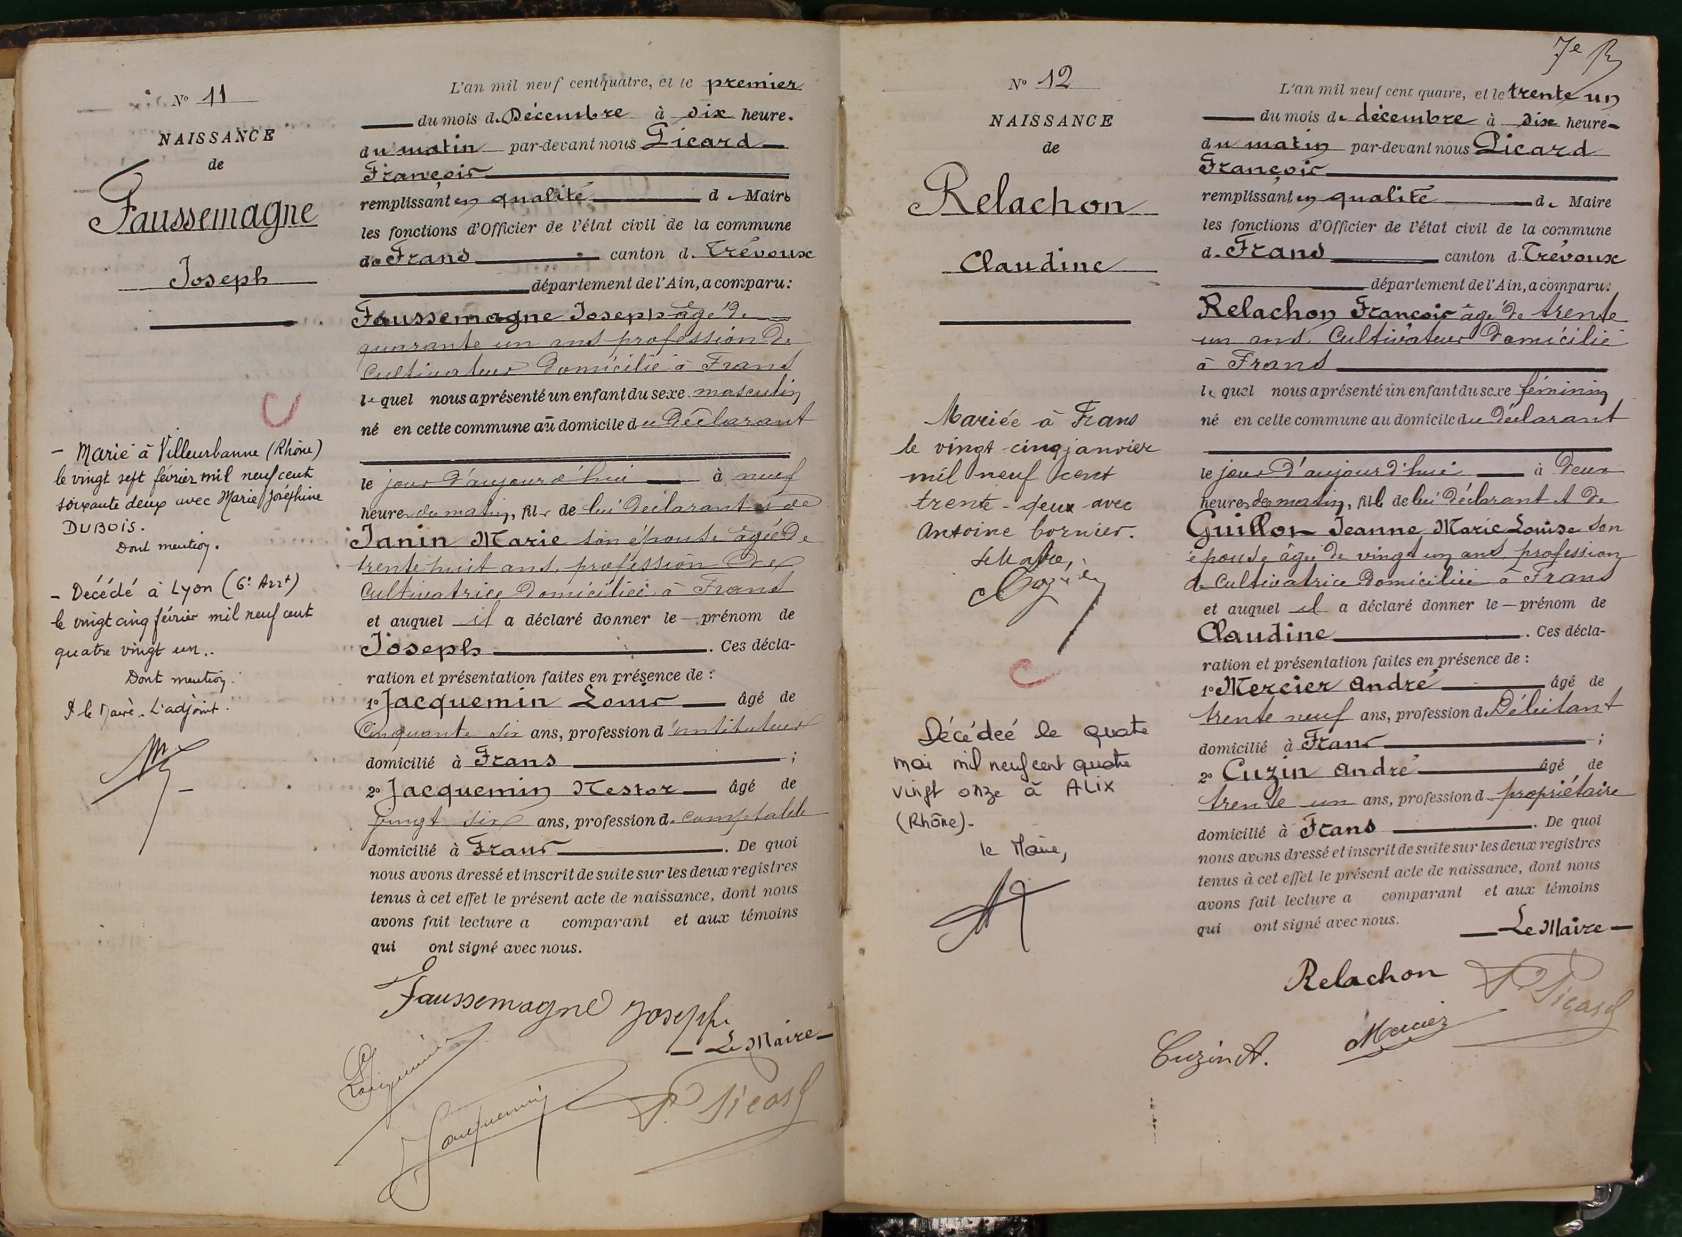 N° 11
NAISSANCE
de
Faussemagne
Joseph
— Marié à Villeurbanne (Rhône)
le vingt sept février mil neuf cent
soixante deux avec Marie Joséphine
DUBOIS.
Dont mention.
— Décédé à Lyon (6e Arrt)
le vingt cinq février mil neuf cent
quatre vingt un..
Dont mention.
P. le Maire. L'adjoint.
L'an mil neuf cent quatre, et le premier
du mois de Décembre à dix heures
du matin par-devant nous Picard
François
remplissant en qualité de Maire
les fonctions d'Officier de l'état civil de la commune
de Frans canton de Trévoux
département de l'Ain, a comparu:
Faussemagne Joseph âgé de
quarante un ans profession de
Cultivateur domicilié à Frans
lequel nous a présenté un enfant du sexe masculin
né en cette commune au domicile du Déclarant
le jour d'aujourd'hui à neuf
heures du matin, fils de lui Déclarant et de
Janin Marie son épouse âgée de
trente huit ans, profession de
Cultivatrice domiciliée à Frans
et auquel il a déclaré donner le prénom de
Joseph. Ces décla-
ration et présentation faites en présence de :
1° Jacquemin Louis âgé de
Cinquante six ans, profession d'instituteur
domicilié à Frans ;
2° Jacquemin Nestor âgé de
vingt six ans, profession de comptable
domicilié à Frans. De quoi
nous avons dressé et inscrit de suite sur les deux registres
tenus à cet effet le présent acte de naissance, dont nous
avons fait lecture a comparant et aux témoins
qui ont signé avec nous.
Faussemagne Joseph
— Le Maire —
Jacquemin
Jacquemin
F. Picard
7e
N° 12
NAISSANCE
de
Relachon
Claudine
Mariée à Frans
le vingt-cinq janvier
mil neuf cent
trente-deux avec
Antoine Cornier.
Le Maire,
Décédée le quatre
mai mil neuf cent quatre
vingt onze à ALIX
(Rhône).
le Maire,
L'an mil neuf cent quatre, et le trente un
du mois de décembre à dix heures
du matin par-devant nous Picard
François
remplissant en qualité de Maire
les fonctions d'Officier de l'état civil de la commune
de Frans canton de Trévoux
département de l'Ain, a comparu:
Relachon François âgé de trente
un ans Cultivateur domicilié
à Frans
lequel nous a présenté un enfant du sexe féminin
né en cette commune au domicile du Déclarant
le jour d'aujourd'hui à deux
heures du matin, fille de lui Déclarant et de
Guillon Jeanne Marie Louise son
épouse âgée de vingt un ans profession
de Cultivatrice domiciliée à Frans
et auquel il a déclaré donner le prénom de
Claudine. Ces décla-
ration et présentation faites en présence de :
1° Mercier André âgé de
trente neuf ans, profession de Débitant
domicilié à Frans ;
2° Cuzin André âgé de
trente un ans, profession de propriétaire
domicilié à Frans. De quoi
nous avons dressé et inscrit de suite sur les deux registres
tenus à cet effet le présent acte de naissance, dont nous
avons fait lecture a comparant et aux témoins
qui ont signé avec nous.
— Le Maire —
Relachon
F. Picard
Mercier
Cuzin A.